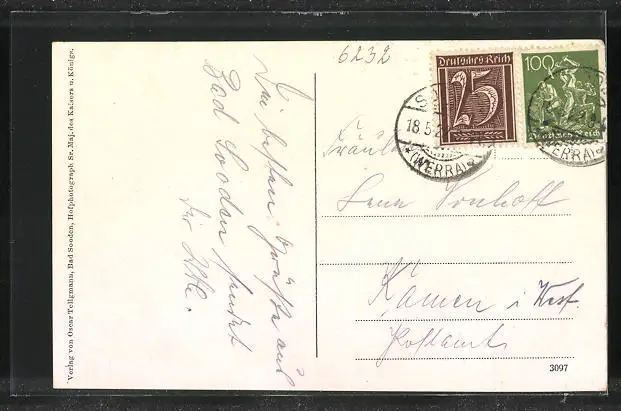 6232
Deutsches Reich
25
100
Deutsches Reich
18.5.2
(WERRA)
(WERRA)
Die besten Grüße aus
Bad Sooden sendet
Dir Elli.
Fräulein
Lena
Kamen i. Westf.
Postamt
3097
Verlag von Oscar Tellgmann, Bad Sooden, Hofphotograph Sr. Maj. des Kaisers u. Königs.